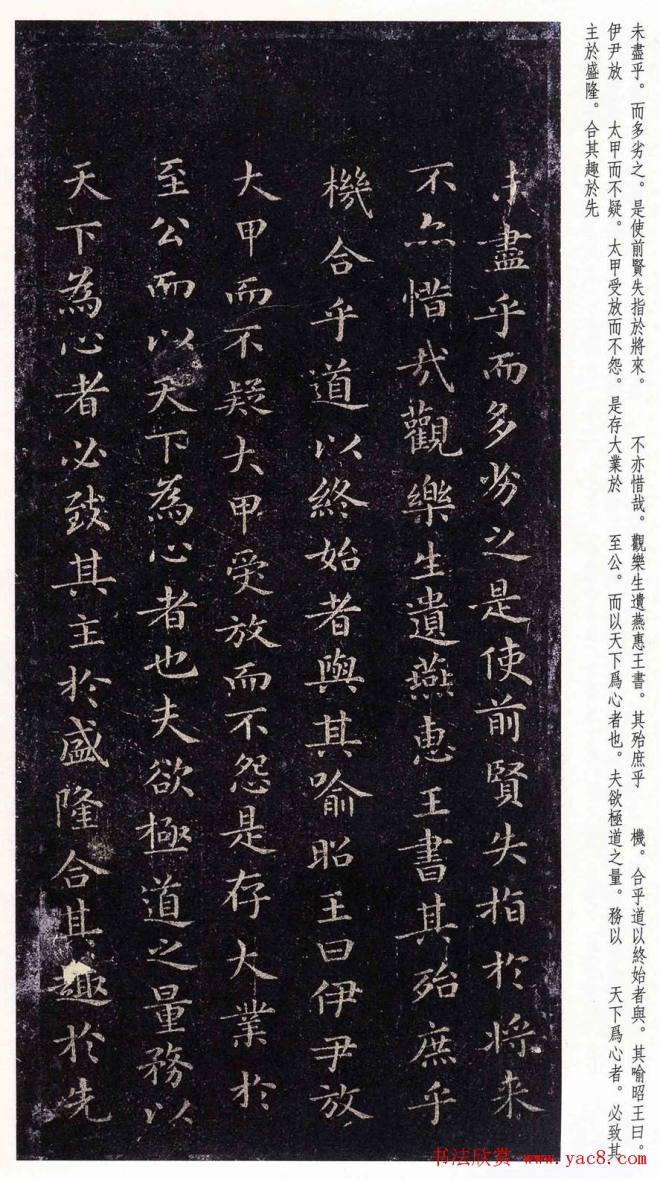 未盡乎。而多劣之。是使前賢失指於將來。 不亦惜哉。觀樂生遺燕惠王書。其殆庶乎 機。合乎道以終始者與。其喻昭王曰。
伊尹放 太甲而不疑。太甲受放而不怨。是存大業於 至公。而以天下爲心者也。夫欲極道之量。務以 天下爲心者。必致其
主於盛隆。合其趣於先
未盡乎而多劣之是使前賢失指於將来
不亦惜哉觀樂生遺燕惠王書其殆庶乎
機合乎道以終始者與其喻昭王曰伊尹放
大甲而不疑大甲受放而不怨是存大業於
至公而以天下為心者也夫欲極道之量務以
天下為心者必致其主於盛隆合其趣於先
书法欣赏 www.yac8.com